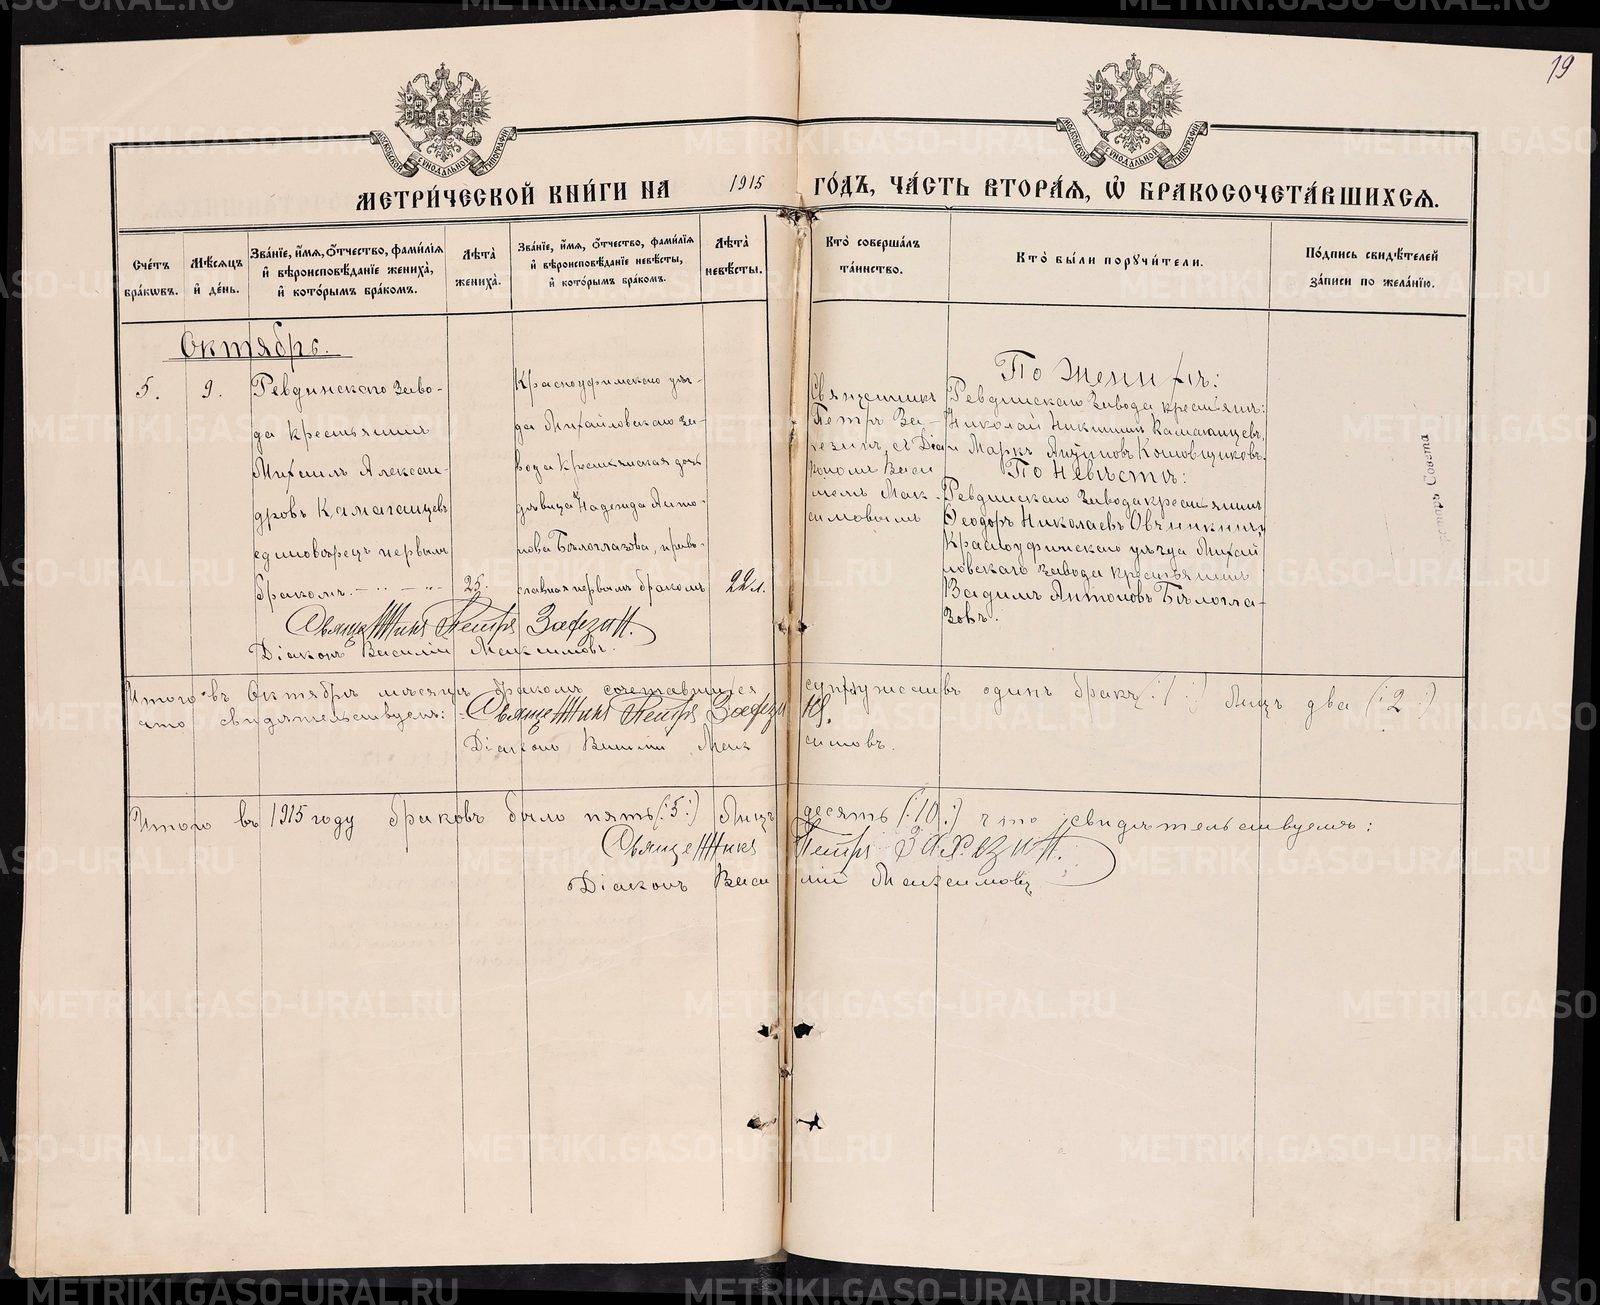 19
МОСКОВСКОЙ СѴНОДАЛЬНОЙ ТИПОГРАФІИ
МОСКОВСКОЙ СѴНОДАЛЬНОЙ ТИПОГРАФІИ
МЕТРИ́ЧЕСКОЙ КНИ́ГИ НА 1915 ГО́ДЪ, ЧА́СТЬ ВТОРА́Ѧ, Ѡ҆ БРАКОСОЧЕТА́ВШИХСѦ.
Сче́тъ
бра́кѡвъ.
Мѣ́сѧцъ
и҆ де́нь.
Зва́нїе, и҆́мѧ, ѻ҆́тчество, фами́лїѧ
и҆ вѣроисповѣ́данїе жениха̀,
и҆ кото́рымъ бра́комъ.
Лѣ́та̀
жениха̀.
Зва́нїе, и҆́мѧ, ѻ҆́тчество, фами́лїѧ
и҆ вѣроисповѣ́данїе невѣ́сты,
и҆ кото́рымъ бра́комъ.
Лѣ́та̀
невѣ́сты.
Кто̀ соверша́лъ
та́инство.
Кто̀ бы́ли порꙋчи́тели.
По́дпись свидѣ́телей
за́писи по жела́нїю.
Октябрь.
5.
9.
Ревдинскаго Заво-
да крестьянинъ
Михаилъ Александ-
дровъ Камаганцевъ
единоверецъ первымъ
бракомъ.
25.
Красноуфимскаго уѣз-
да Михайловскаго за-
вода крестьянская дочь
дѣвица Надежда Анто-
нова Бѣлоглазова, право-
славная первымъ бракомъ
22 л.
Священникъ
Петръ За-
хезинъ, съ Діа
кономъ Васи
ліемъ Мак
симовымъ
По Женихѣ:
Ревдинскаго Завода крестьяне:
Николай Никитинъ Камаганцевъ,
и Маркъ Кошовщиковъ.
По Невѣстѣ:
Ревдинскаго Завода крестьянинъ
Ѳеодоръ Николаевъ Овчинкинъ,
Красноуфимскаго уѣзда Михай
ловскаго завода крестьянинъ
Вадимъ Антоновъ Бѣлогла-
зовъ.
Священникъ Петръ
Діаконъ Василій Максимовъ.
Итого въ Октябрѣ мѣсяцѣ бракомъ сочетавшихся супружествъ одинъ бракъ (:1:) Лицъ два (:2:)
что свидѣтельствуемъ: Священникъ Петръ
Діаконъ Василій Максимовъ.
Итого въ 1915 году браковъ было пять (:5:) Лицъ десять (:10:) что свидѣтельствуемъ:
Священникъ Петръ
Діаконъ Василій Максимовъ
Совета
METRIKI.GASO-URAL.RU